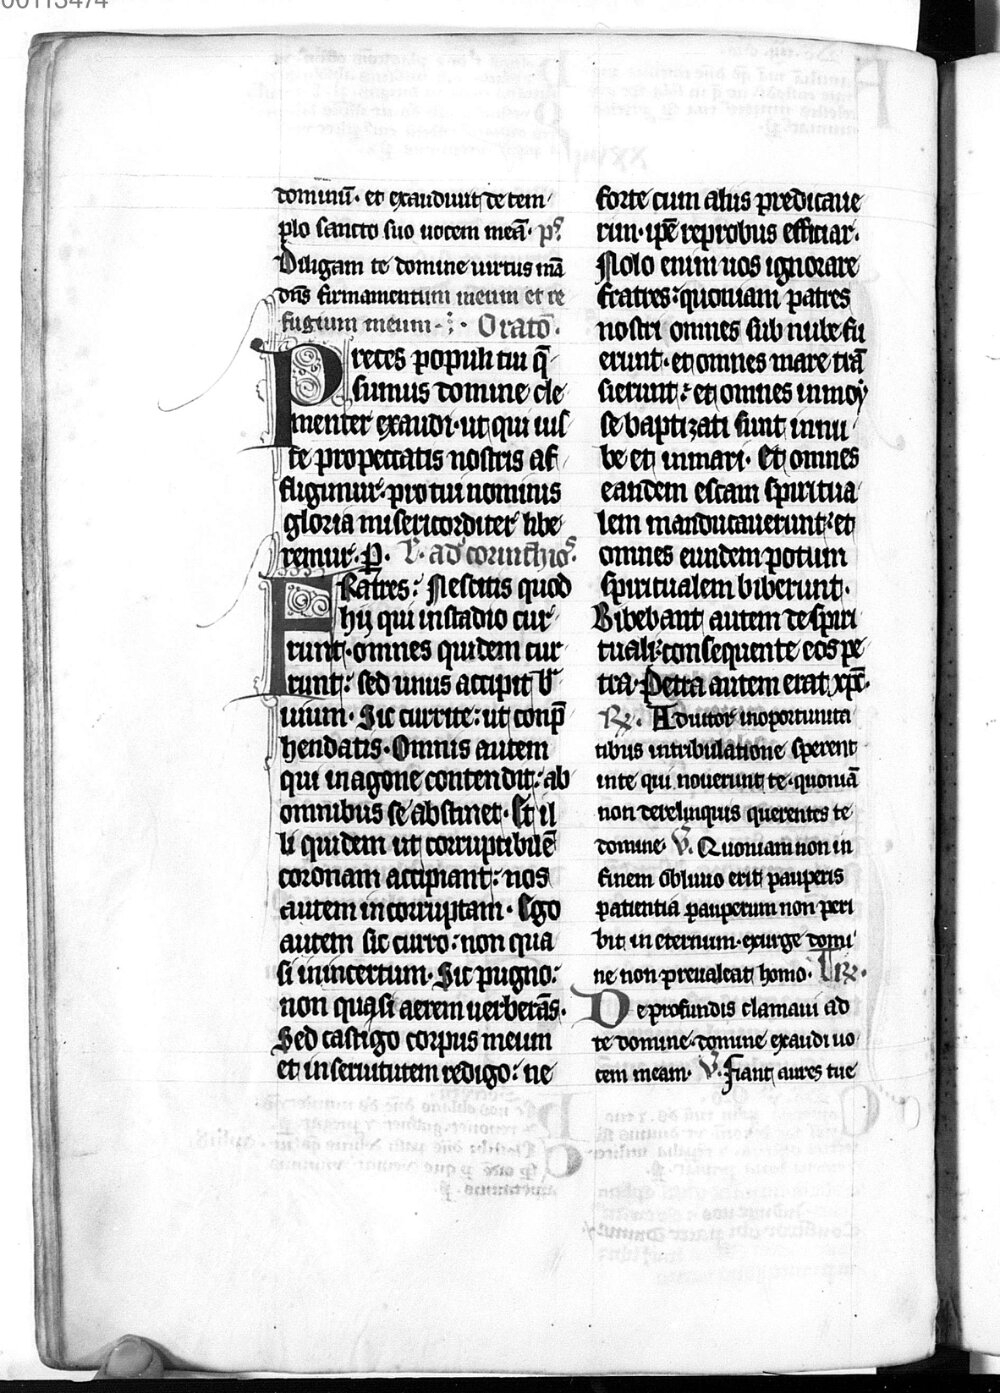 00113474
dominū. et exaudiuit de tem
plo sancto suo uocem meā. ps̄
Diligam te domine uirtus mā
dn̄s firmamentum meum et re
fugium meum. Oratō.
Preces populi tui q̄
sumus domine cle
menter exaudi. ut qui ius
te pro peccatis nostris af
fligimur. pro tui nominis
gloria misericorditer libe
remur. P. ad corinthios.
Fratres: Nescitis quod
hij qui in stadio cur
runt. omnes quidem cur
runt: sed unus accipit b̄
uium. Sic currite: ut conp̄
hendatis. Omnis autem
qui in agone contendit: ab
omnibus se abstinet. Et il
li quidem ut corruptibilē
coronam accipiant: nos
autem incorruptam. Ego
autem sic curro: non qua
si in incertum. Sic pugno:
non quasi aerem uerberās.
Sed castigo corpus meum
et in seruitutem redigo: ne
forte cum aliis predicaue
rim. ip̄e reprobus efficiar.
Nolo enim uos ignorare
fratres: quoniam patres
nostri omnes sub nube fu
erunt. et omnes mare trā
sierunt: et omnes in moy
se baptizati sunt in nu
be et in mari. Et omnes
eandem escam spiritua
lem manducauerunt: et
omnes eundem potum
spiritualem biberunt.
Bibebant autem de spiri
tuali: consequente eos pe
tra. Petra autem erat xp̄c.
R. Adiutor in oportunita
tibus in tribulatione sperent
in te qui nouerunt te. quoniā
non derelinquis querentes te
domine V. Quoniam non in
finem obliuio erit pauperis
patientia pauperum non peri
bit in eternum. exurge domi
ne non preualeat homo. Tr.
De profundis clamaui ad
te domine. domine exaudi uo
cem meam. V. Fiant aures tue